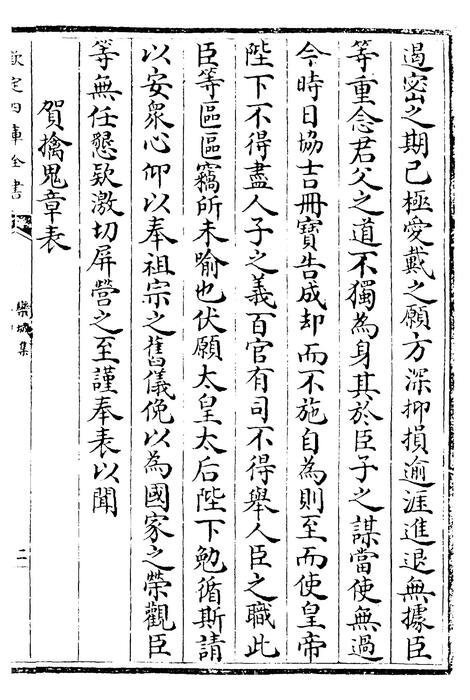 遏密之期已極愛戴之願方深抑損逾涯進退無據臣
等重念君父之道不獨為身其於臣子之謀當使無過
今時日協吉冊寶告成却而不施自為則至而使皇帝
陛下不得盡人子之義百官有司不得舉人臣之職此
臣等區區竊所未喻也伏願太皇太后陛下勉循斯請
以安衆心仰以奉祖宗之舊儀俛以為國家之榮觀臣
等無任懇欵激切屏營之至謹奉表以聞
賀擒鬼章表
欽定四庫全書
欒城集
二